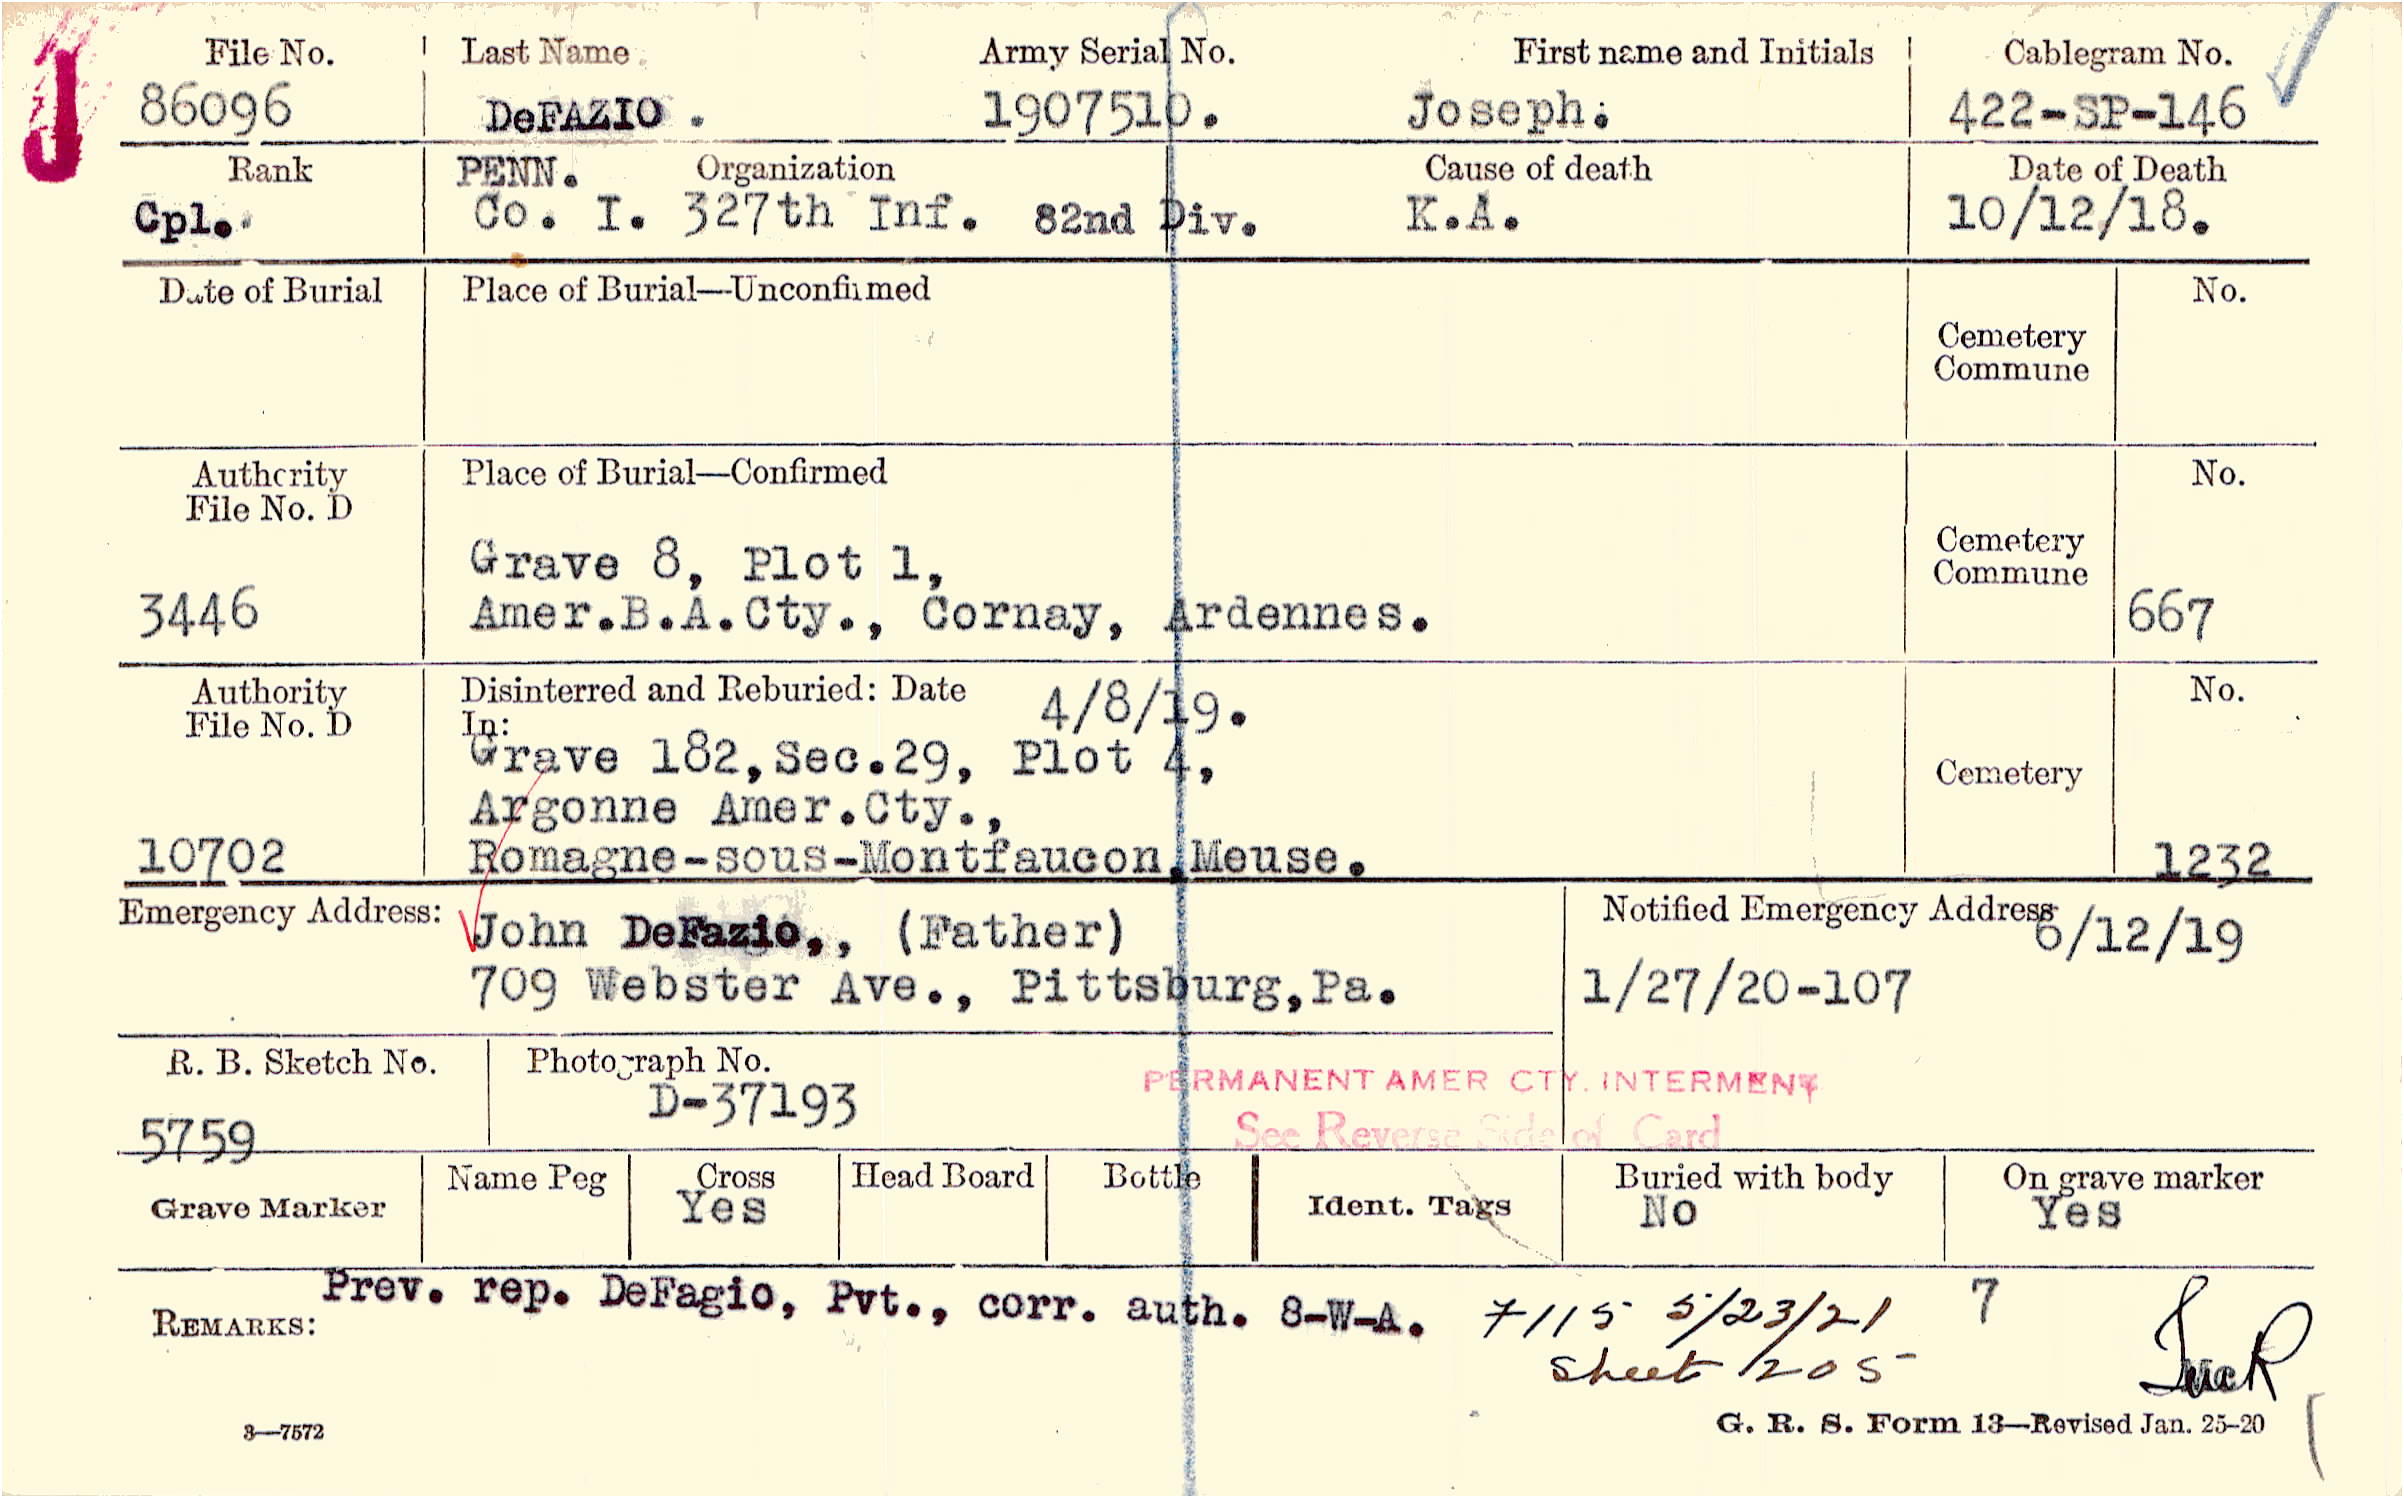 J
File No. Last Name. Army Serial No. First name and Initials Cablegram No.
86096 DeFAZIO . 1907510. Joseph. 422-SP-146
Rank PENN. Organization Cause of death Date of Death
Cpl. Co. I. 327th Inf. 82nd Div. K.A. 10/12/18.
Date of Burial Place of Burial—Unconfirmed No.
Cemetery
Commune
Authority Place of Burial—Confirmed No.
File No. D
Cemetery
Grave 8, Plot 1, Commune
3446 Amer.B.A.Cty., Cornay, Ardennes. 667
Authority Disinterred and Reburied: Date 4/8/19. No.
File No. D In:
Grave 182,Sec.29, Plot 4, Cemetery
Argonne Amer.Cty.,
10702 Romagne-sous-Montfaucon,Meuse. 1232
Emergency Address: John DeFazio,, (Father) Notified Emergency Address 6/12/19
709 Webster Ave., Pittsburg,Pa. 1/27/20-107
R. B. Sketch No. Photograph No.
5759 D-37193 PERMANENT AMER CTY. INTERMENT
See Reverse Side of Card
Grave Marker Name Peg Cross Head Board Bottle Ident. Tags Buried with body On grave marker
Yes No Yes
REMARKS: Prev. rep. DeFagio, Pvt., corr. auth. 8-W-A. 7115 5/23/21 7
Sheet 205
3—7572 G. R. S. Form 13—Revised Jan. 25-20